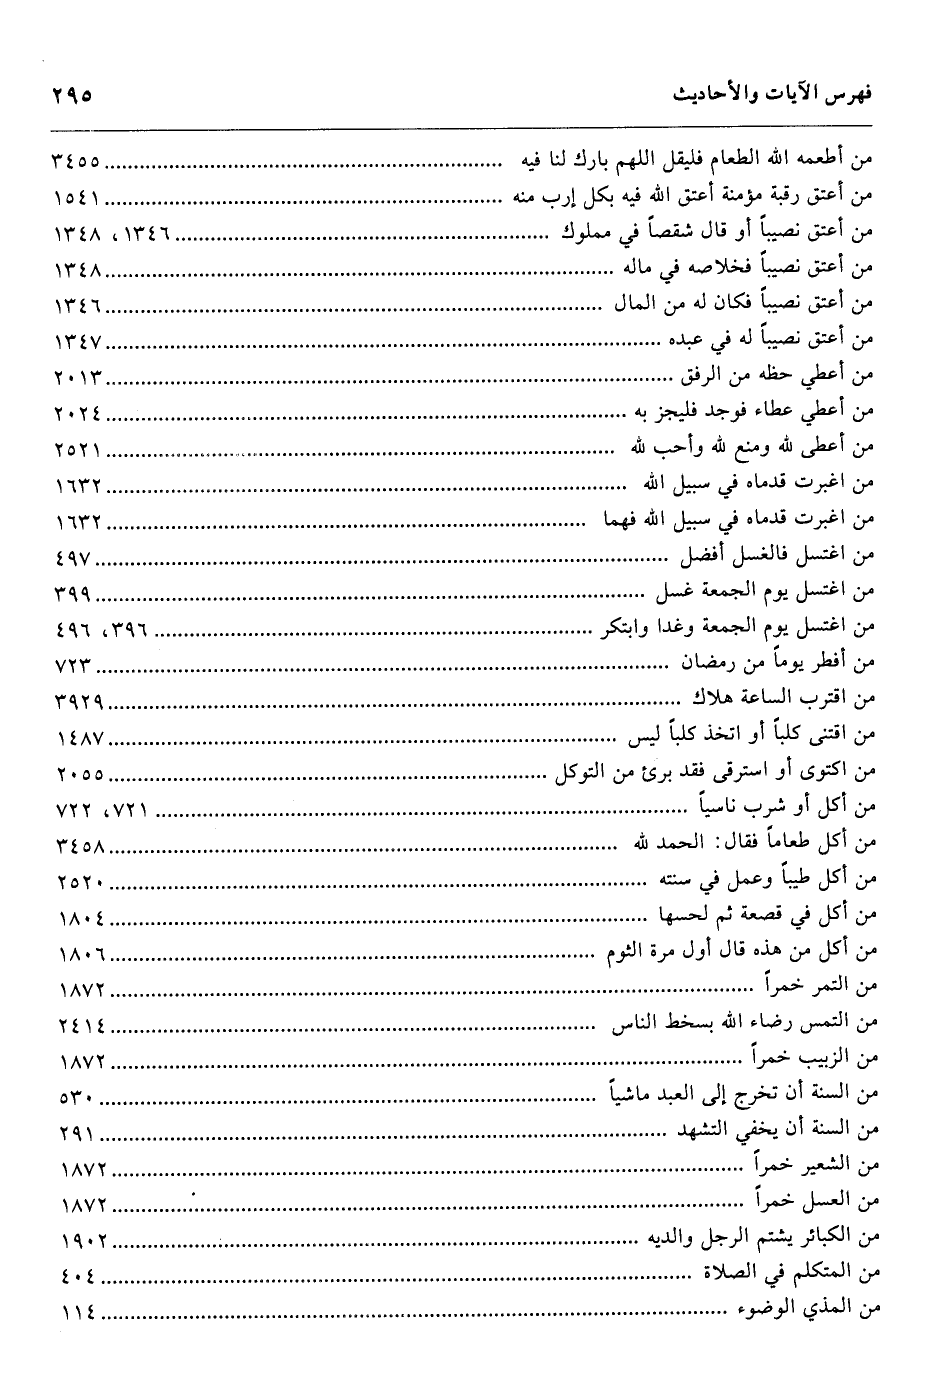 فهرس الآيات والأحاديث ٢٩٥
من أطعمه الله الطعام فليقل اللهم بارك لنا فيه ... ٣٤٥٥
من أعتق رقبة مؤمنة أعتق الله فيه بكل إرب منه ... ١٥٤١
من أعتق نصيباً أو قال شقصاً في مملوك ... ١٣٤٦، ١٣٤٨
من أعتق نصيباً فخلاصه في ماله ... ١٣٤٨
من أعتق نصيباً فكان له من المال ... ١٣٤٦
من أعتق نصيباً له في عبده ... ١٣٤٧
من أعطي حظه من الرفق ... ٢٠١٣
من أعطي عطاء فوجد فليجز به ... ٢٠٢٤
من أعطى لله ومنع لله وأحب لله ... ٢٥٢١
من اغبرت قدماه في سبيل الله ... ١٦٣٢
من اغبرت قدماه في سبيل الله فهما ... ١٦٣٢
من اغتسل فالغسل أفضل ... ٤٩٧
من اغتسل يوم الجمعة غسل ... ٣٩٩
من اغتسل يوم الجمعة وغدا وابتكر ... ٣٩٦، ٤٩٦
من أفطر يوماً من رمضان ... ٧٢٣
من اقترب الساعة هلاك ... ٣٩٢٩
من اقتنى كلباً أو اتخذ كلباً ليس ... ١٤٨٧
من اكتوى أو استرقى فقد برئ من التوكل ... ٢٠٥٥
من أكل أو شرب ناسياً ... ٧٢١، ٧٢٢
من أكل طعاماً فقال: الحمد لله ... ٣٤٥٨
من أكل طيباً وعمل في سنته ... ٢٥٢٠
من أكل في قصعة ثم لحسها ... ١٨٠٤
من أكل من هذه قال أول مرة الثوم ... ١٨٠٦
من التمر خمراً ... ١٨٧٢
من التمس رضاء الله بسخط الناس ... ٢٤١٤
من الزبيب خمراً ... ١٨٧٢
من السنة أن تخرج إلى العبد ماشياً ... ٥٣٠
من السنة أن يخفي التشهد ... ٢٩١
من الشعير خمراً ... ١٨٧٢
من العسل خمراً ... ١٨٧٢
من الكبائر يشتم الرجل والديه ... ١٩٠٢
من المتكلم في الصلاة ... ٤٠٤
من المذي الوضوء ... ١١٤